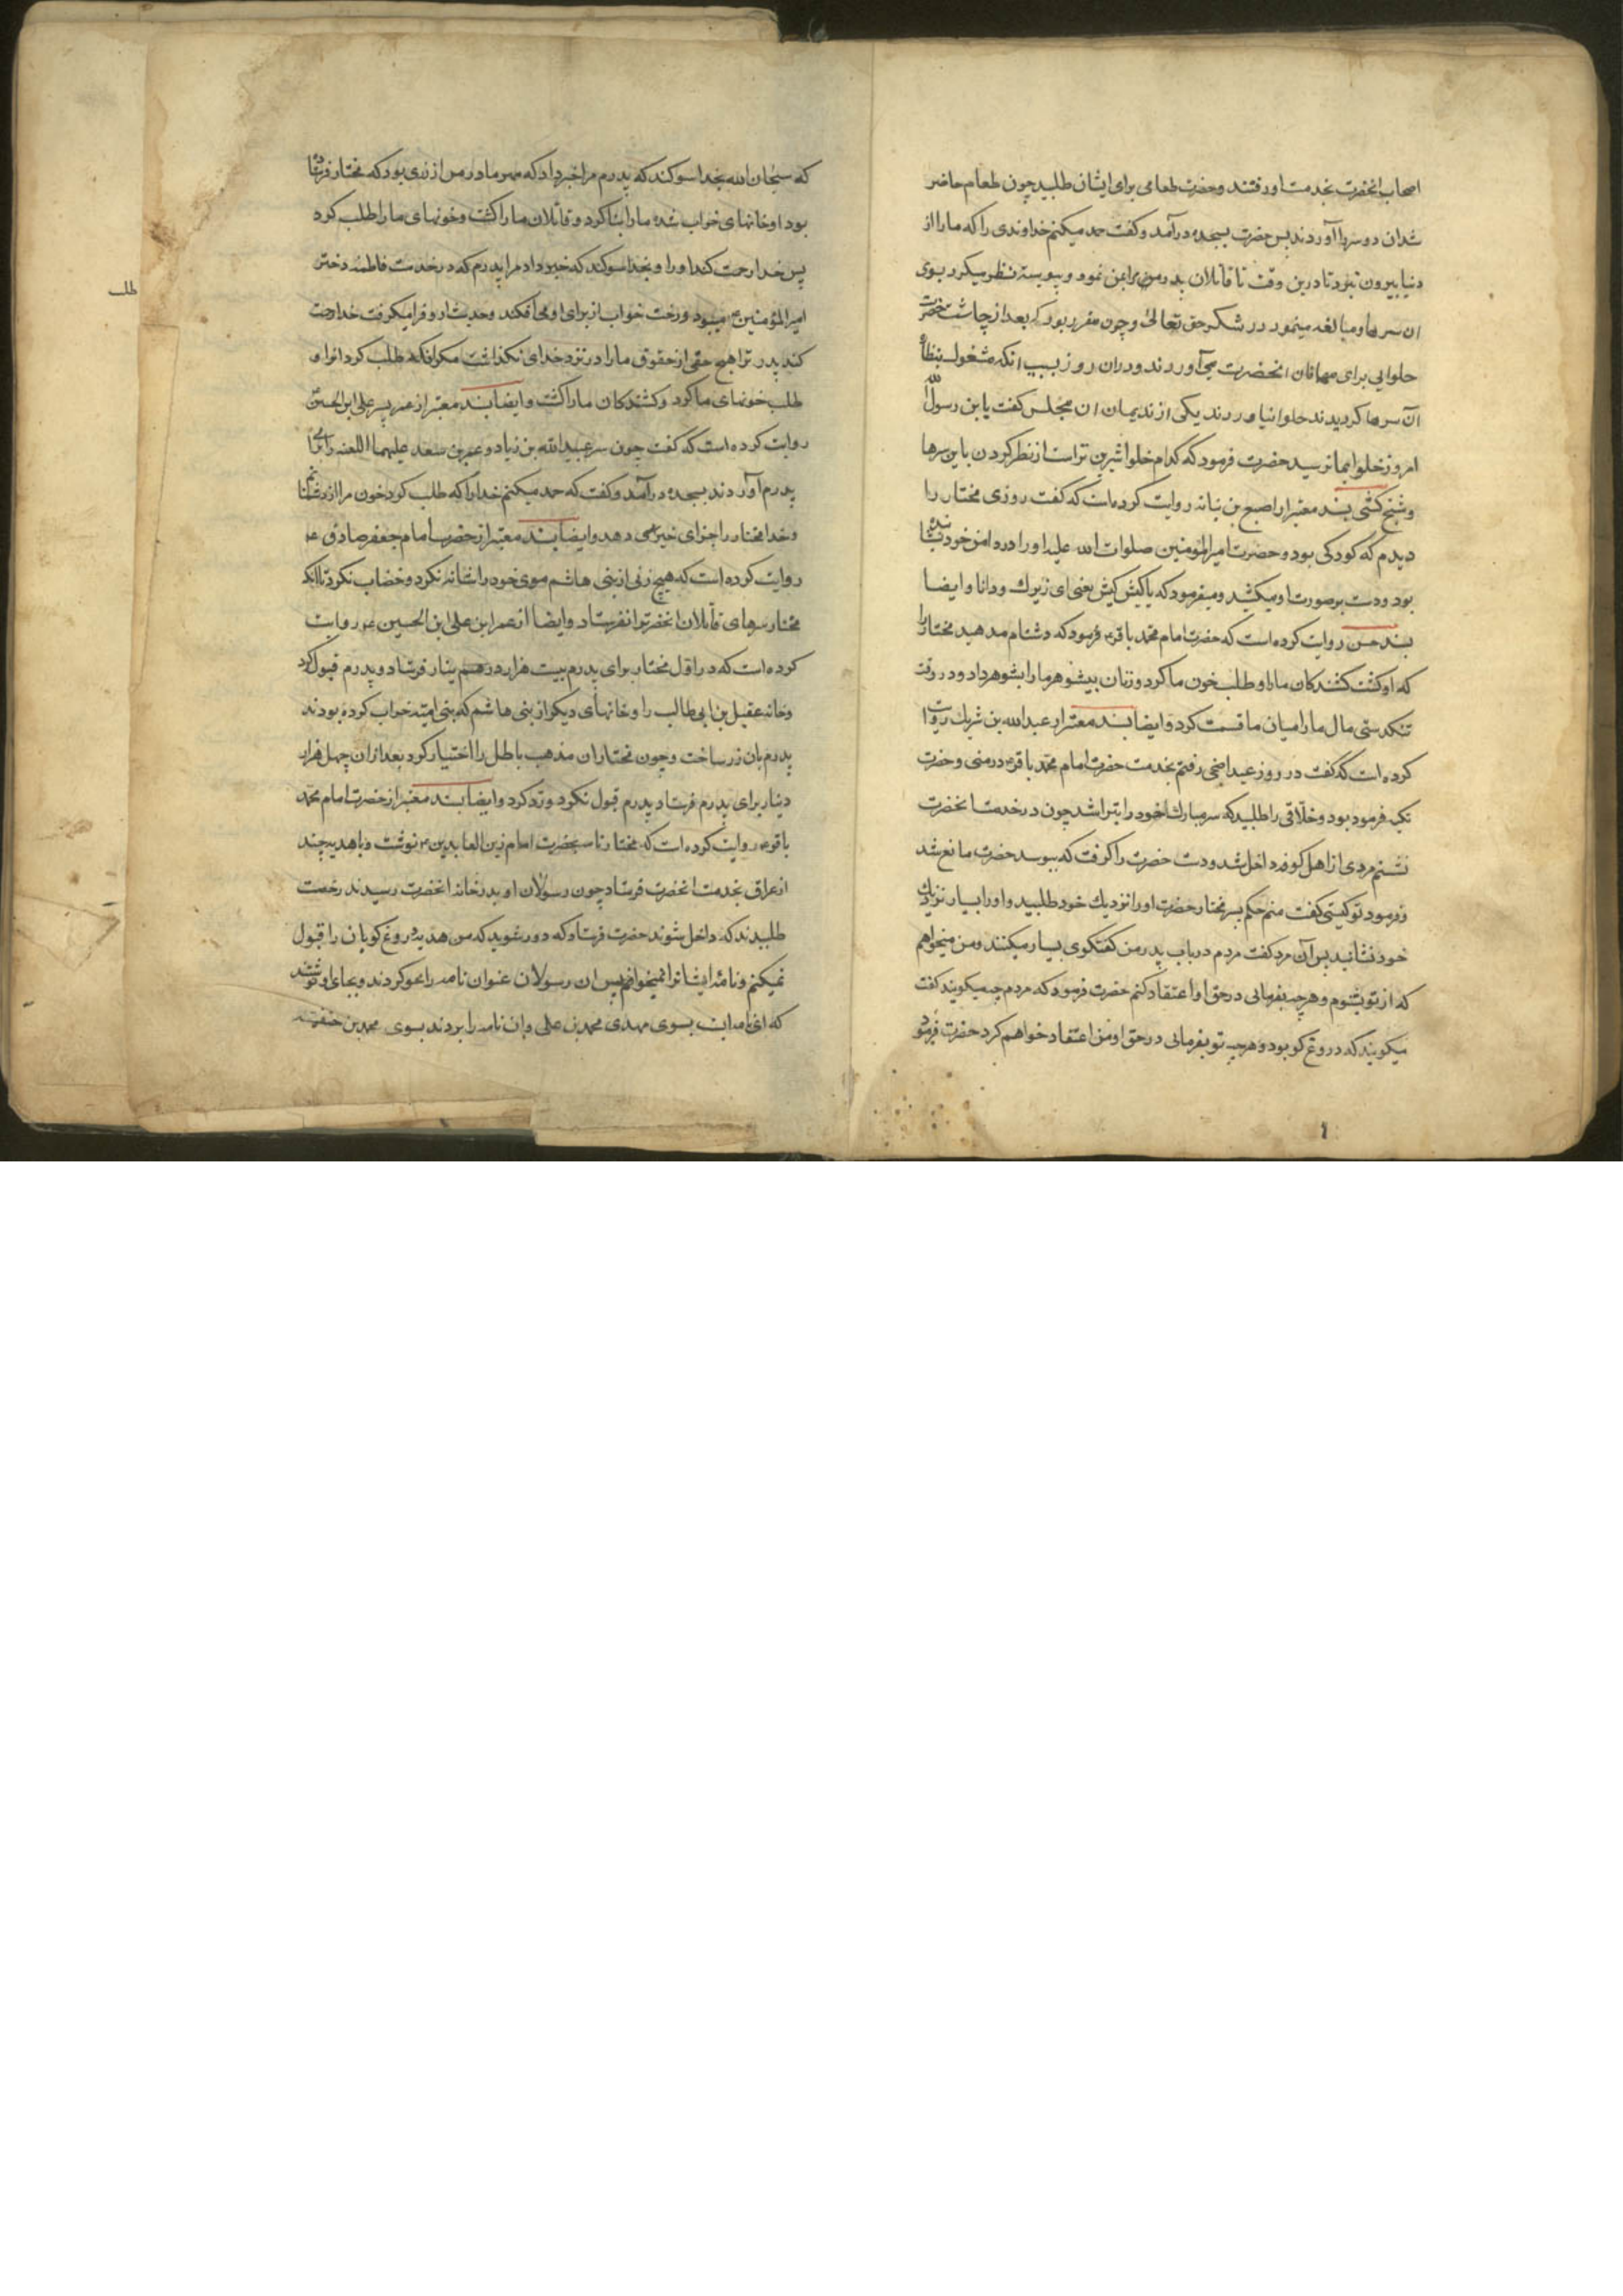 اصحاب انحضرت بخدمت او رفتند و حضرت طعامی برای ایشان طلبید چون طعام حاضر
شد ان دو سر را آوردند پس حضرت بسجده درآمد و کفت حمد میکنم خداوندی را که ما را از
دنیا بیرون نبرد تا درین وقت تا قاتلان پدر من برا بمن نمود و پیوسته نظر میکرد بسوی
ان سرها و مبالغه مینمود در شکر حق تعالی و چون مقرر بود که بعد از چاشت حضرت
حلوایی برای مهمانان انحضرت می‌آوردند و دران روز بسبب انکه مشغول بنظاره
آن سرها کردیدند حلوا نیاوردند یکی از ندیمان ان مجلس کفت یا بن رسول الله
امروز حلوا بما نرسید حضرت فرمود که کدام حلوا شیرین تر است از نظر کردن باین سرها
و شیخ کشی بسند معتبر از اصبع بن نباته روایت کرده است که کفت روزی مختار را
دیدم که کودکی بود و حضرت امیرالمؤمنین صلوات الله علیه او را در دامن خود نشانیده
بود و دست بر صورت او میکشید و میفرمود که یا کیش کیش یعنی ای زیرک و دانا و ایضا
بسند حسن روایت کرده است که حضرت امام محمد باقر ع فرمود که دشنام مدهید مختار را
که او کشت کشندکان ما را و طلب خون ما کرد و زنان بیشوهر ما را بشوهر داد و در وقت
تنکدستی مال ما را میان ما قسمت کرد و ایضا بسند معتبر از عبدالله بن شریک روایت
کرده است که کفت در روز عید اضحی رفتم بخدمت حضرت امام محمد باقر ع در منی و حضرت
تکیه فرموده بود و حلاقی را طلبید که سر مبارک خود را بتراشد چون در خدمت انحضرت
نشستم مردی از اهل کوفه داخل شد و دست حضرت را کرفت که ببوسد حضرت مانع شد
و فرمود تو کیستی کفت منم حکم پسر مختار حضرت او را نزدیک خود طلبید و او را بسیار نزدیک
خود نشانید پس آن مرد کفت مردم در باب پدر من کفتکوی بسیار میکنند و من میخواهم
که از تو بشنوم و هر چه بفرمایی در حق او اعتقاد کنم حضرت فرمود که مردم چه میکویند کفت
میکویند که دروغ کو بود و هر چه تو بفرمایی در حق او من اعتقاد خواهم کرد حضرت فرمود
که سبحان الله بخدا سوکند که پدرم مرا خبر داد که مهر مادر من از زری بود که مختار فرستاده
بود او خانهای خراب شده ما را بنا کرد و قاتلان ما را کشت و خونهای ما را طلب کرد
پس خدا رحمت کند او را و بخدا سوکند که خبر داد مرا پدرم که در خدمت فاطمه دختر
امیرالمؤمنین ع میبود و رخت خواب از برای او می‌افکند و حدیث از او فرا میکرفت خدا رحمت
کند پدر ترا هیچ حقی از حقوق ما را در نزد خدای نکذاشت مکر انکه طلب کرد انرا و
طلب خونهای ما کرد و کشندکان ما را کشت و ایضا بسند معتبر از عمر پسر علی ابن الحسین
روایت کرده است که کفت چون سر عبیدالله بن زیاد و عمر بن سعد علیهما اللعنه را برای
پدرم آوردند بسجده درآمد و کفت که حمد میکنم خدا را که طلب کرد خون مرا از دشمنان
و خدا مختار را جزای خیر دهد و ایضا بسند معتبر از حضرت امام جعفر صادق ع
روایت کرده است که هیچ زنی از بنی هاشم موی خود را شانه نکرد و خضاب نکرد تا انکه
مختار سرهای قاتلان انحضرترا نفرستاد و ایضا از عمر ابن علی ابن الحسین ع روایت
کرده است که در اول مختار برای پدرم بیست هزار درهم فرستاد و پدرم قبول کرد
و خانه عقیل بن ابی طالب را و خانهای دیکر از بنی هاشم که بنی امیه خراب کرده بودند
پدرم بان زر ساخت و چون مختار ان مذهب باطل را اختیار کرد بعد از ان چهل هزار
دینار برای پدرم فرستاد پدرم قبول نکرد و رد کرد و ایضا بسند معتبر از حضرت امام محمد
باقر ع روایت کرده است که مختار نامه بحضرت امام زین العابدین ع نوشت و با هدیه چند
از عراق بخدمت انحضرت فرستاد چون رسولان او بدر خانه انحضرت رسیدند رخصت
طلبیدند که داخل شوند حضرت فرستاد که دور شوید که من هدیه دروغ کویان را قبول
نمیکنم و نامه ایشانرا نمیخوانم پس ان رسولان عنوان نامه را محو کردند و بجای او نوشتند
که این نامه ایست بسوی مهدی محمد بن علی و ان نامه را بردند بسوی محمد بن حنفیه
طلب